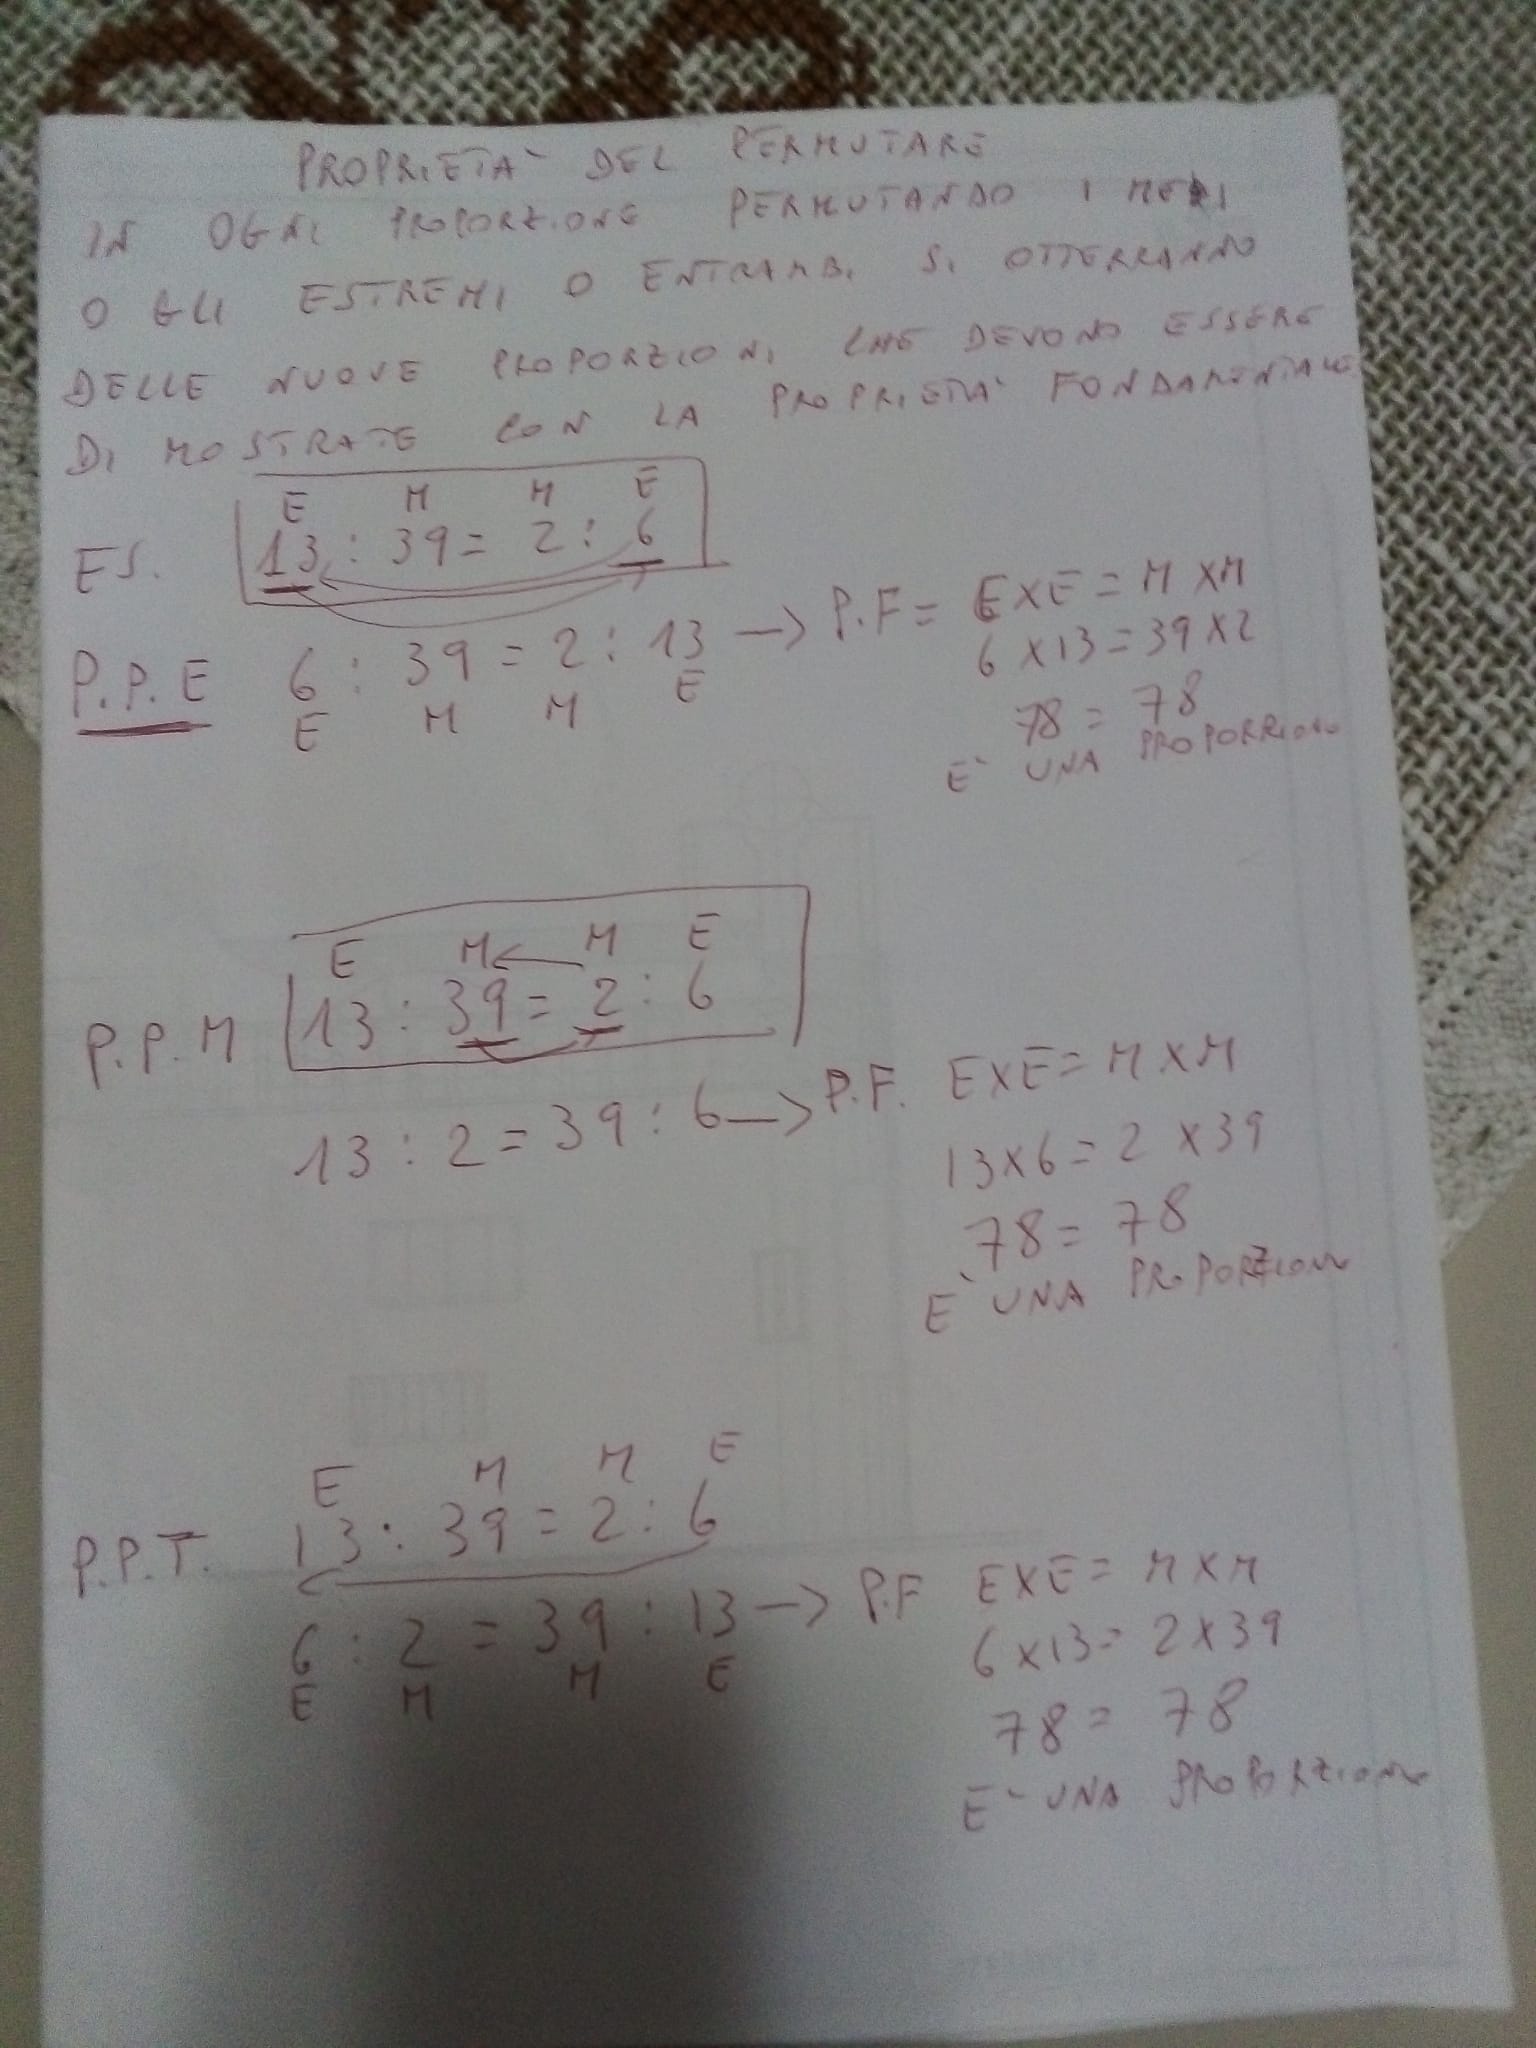 PROPRIETA' DEL PERMUTARE
IN OGNI PROPORZIONE PERMUTANDO I MEDI
O GLI ESTREMI O ENTRAMBI SI OTTERRANNO
DELLE NUOVE PROPORZIONI CHE DEVONO ESSERE
DIMOSTRATE CON LA PROPRIETA' FONDAMENTALE
E M M E
ES. 13 : 39 = 2 : 6
P.P.E 6 : 39 = 2 : 13 -> P.F = EXE = M X M
E M M E
6 X 13 = 39 X 2
78 = 78
E' UNA PROPORRIONE
E M <- M E
P.P.M 13 : 39 = 2 : 6
13 : 2 = 39 : 6 -> P.F. EXE = M X M
13 X 6 = 2 X 39
78 = 78
E' UNA PROPORZIONE
E M M E
P.P.T. 13 : 39 = 2 : 6
6 : 2 = 39 : 13 -> P.F EXE = M X M
E M M E
6 X 13 = 2 X 39
78 = 78
E' UNA PROPORZIONE